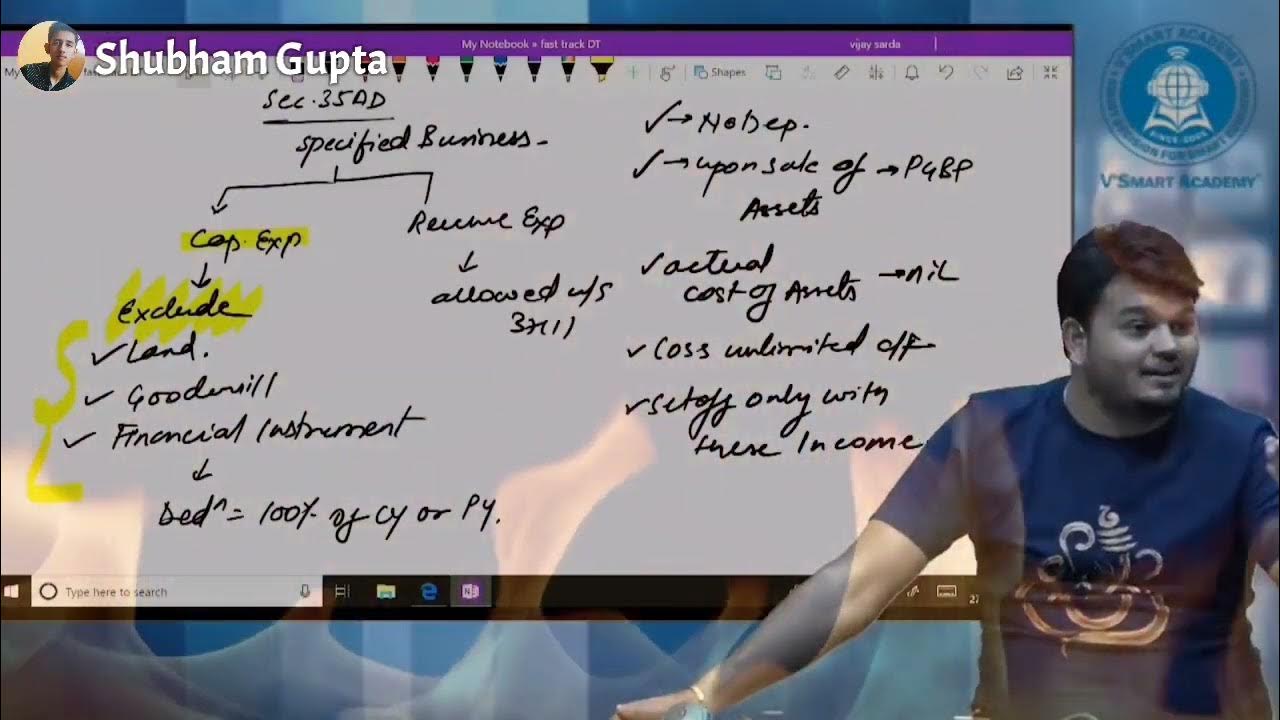 Shubham Gupta
My Notebook » fast track DT
vijay sarda
Shapes
Sec. 35AD
Specified Business -
Cap. Exp
Revenue Exp
Exclude
allowed u/s
37(1)
✓ Land.
✓ Goodwill
✓ Financial Instrument
Dedⁿ = 100% of CY or PY.
✓ → No Dep.
✓ → upon sale of → PGBP
Assets
✓ actual
cost of Assets → nil
✓ Loss unlimited c/f
✓ Setoff only with
these Income
Type here to search
27
V'SMART ACADEMY
SINCE